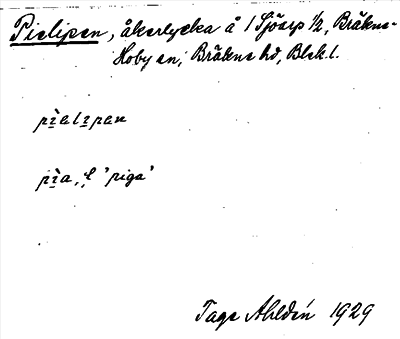 Pielipen, åkerlycka å 1 Sjöarp 1/2, Bräkne-
Hoby sn, Bräkne hd, Blek. l.
pìalıpan
pìa, f. 'piga'
Tage Ahldén 1929